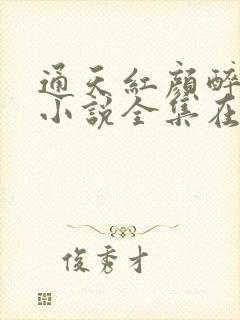 通天紅顏醉
小說全集在
俊秀才